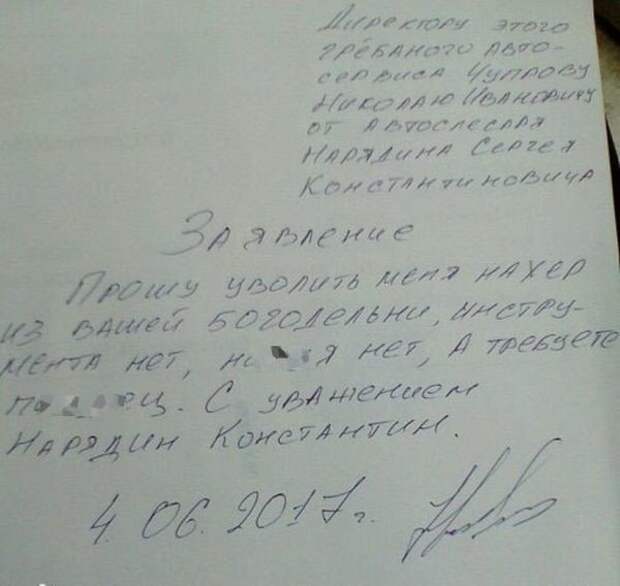 Директору этого
грёбаного авто-
сервиса Чупрову
Николаю Ивановичу
от автослесаря
Нарядина Сергея
Константиновича
Заявление
Прошу уволить меня нахер
из вашей богодельни, инстру-
мента нет, нет, а требуете
С уважением
Нарядин Константин.
4.06.2017г.